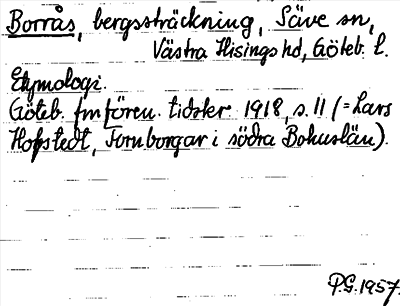 Borrås, bergssträckning, Säve sn,
Västra Hisings hd, Göteb. l.
Etymologi.
Göteb. fmfören. tidskr. 1918, s. 11 (= Lars
Hofstedt, Fornborgar i södra Bohuslän).
P.G. 1957.